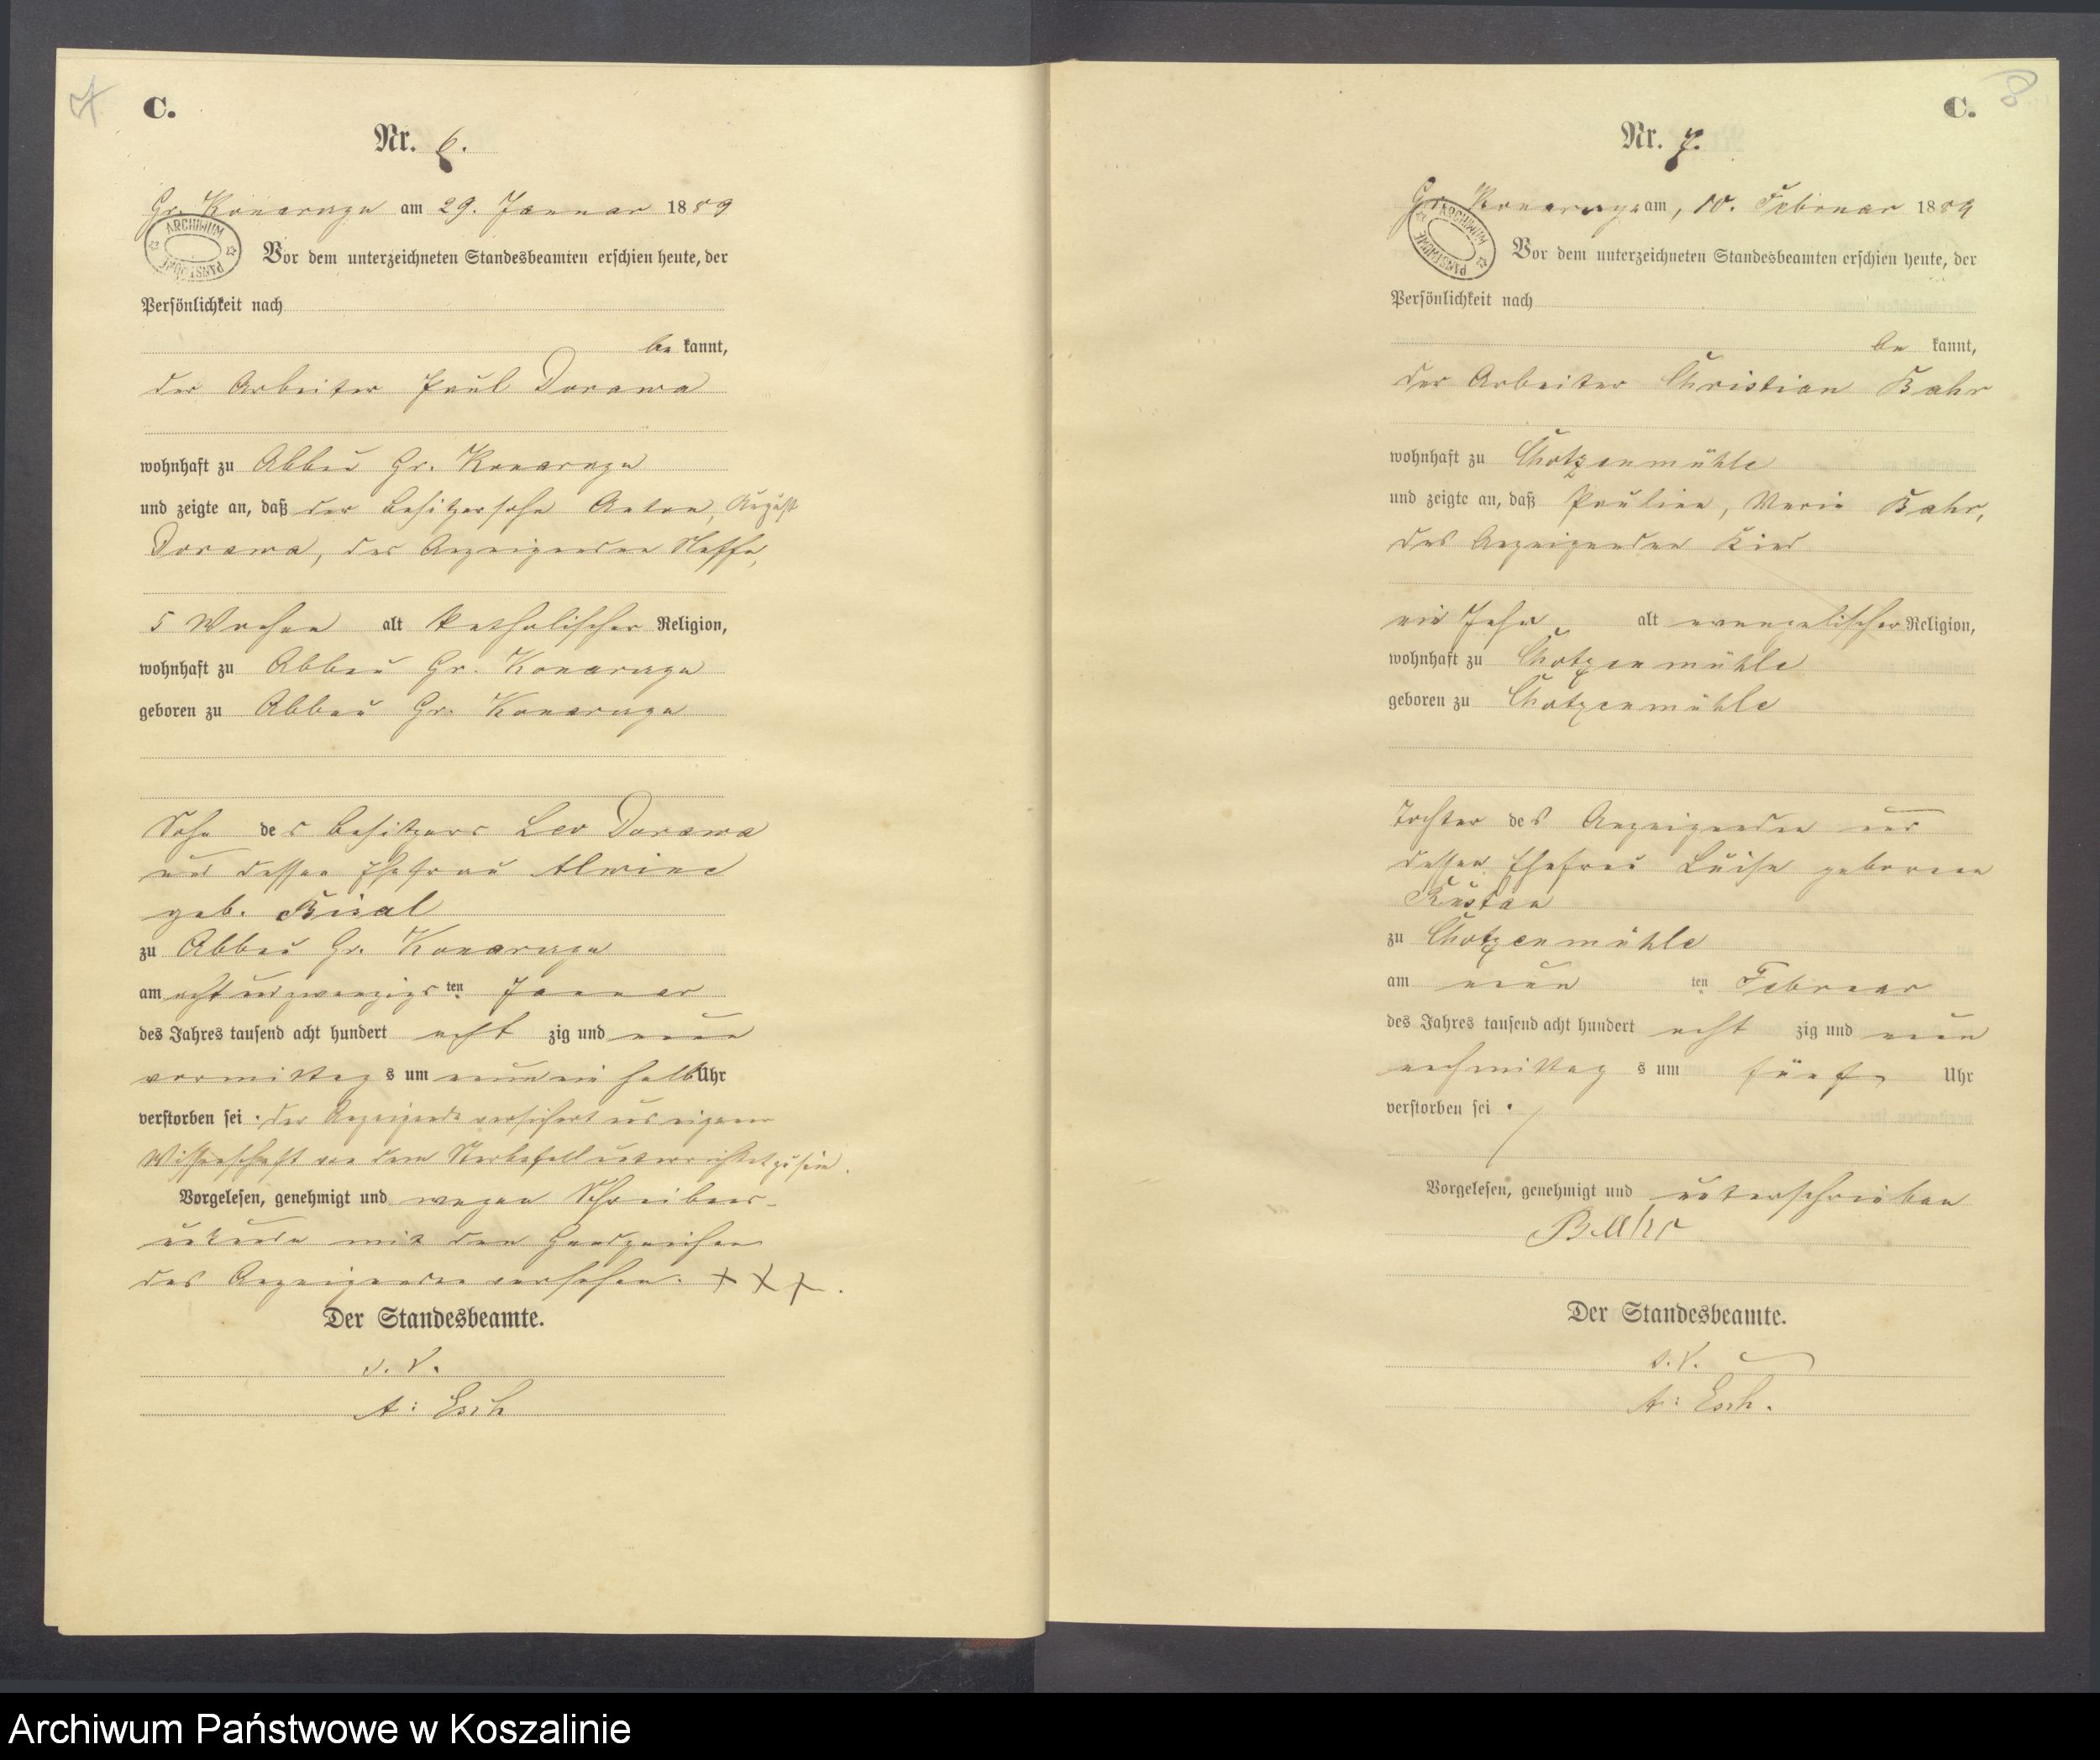 C.
Nr. 6.
Gr. Konarczyn am 29. Januar 1889
ARCHIWUM PAŃSTWOWE
Vor dem unterzeichneten Standesbeamten erschien heute, der
Persönlichkeit nach
be kannt,
der Arbeiter Paul Dorawa
wohnhaft zu Abbau Gr. Konarczyn
und zeigte an, daß der Besitzersohn Anton, August
Dorawa, des Anzeigenden Neffe,
5 Wochen alt katholischer Religion,
wohnhaft zu Abbau Gr. Konarczyn
geboren zu Abbau Gr. Konarczyn
Sohn des Besitzers Leo Dorawa
und dessen Ehefrau Alwine
geb.
zu Abbau Gr. Konarczyn
am achtundzwanzigsten Januar
des Jahres tausend acht hundert acht zig und neun
vormittags um neunein halb Uhr
verstorben sei. der Anzeigende versichert aus eigener
Wissenschaft von dem Sterbefall unterrichtet zu sein.
Vorgelesen, genehmigt und wegen Schreibens-
unkunde mit den Handzeichen
des Anzeigenden versehen. + + +.
Der Standesbeamte.
i. V.
A: Esch
C.
8
Nr. 7.
Gr. Konarczyn am, 10. Februar 1889
ARCHIWUM PAŃSTWOWE
Vor dem unterzeichneten Standesbeamten erschien heute, der
Persönlichkeit nach
be kannt,
der Arbeiter Christian Bahr
wohnhaft zu Chotzenmühle
und zeigte an, daß Pauline, Marie Bahr,
des Anzeigenden Kind
ein Jahr alt evangelischer Religion,
wohnhaft zu Chotzenmühle
geboren zu Chotzenmühle
Tochter des Anzeigenden und
dessen Ehefrau Luise geborenen
zu Chotzenmühle
am neun ten Februar
des Jahres tausend acht hundert acht zig und neun
nachmittag s um fünf Uhr
verstorben sei.
Vorgelesen, genehmigt und unterschrieben
Bahr
Der Standesbeamte.
i. V.
A: Esch.
Archiwum Państwowe w Koszalinie